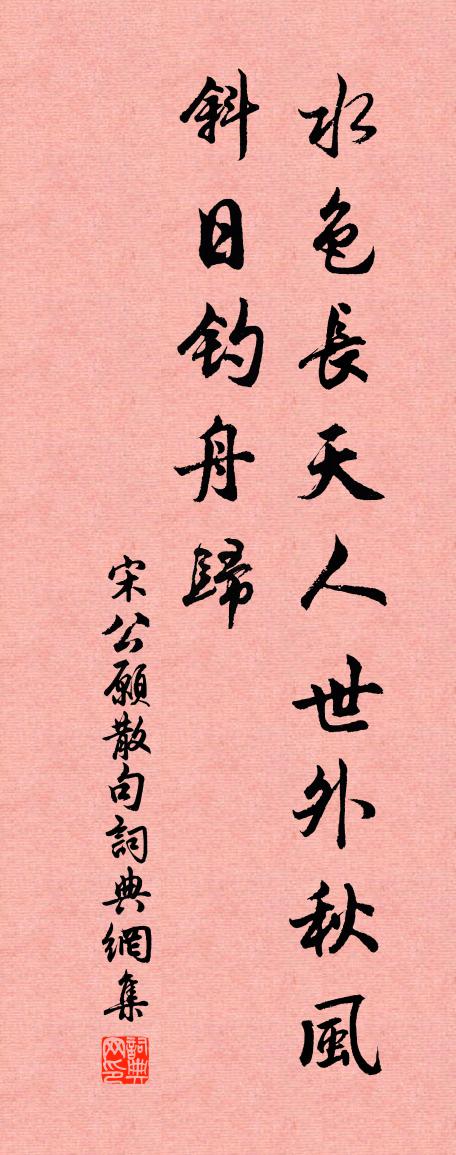 水色長天人世外秋風
斜日釣舟歸
宋公願散句詞典網集
詞典网印